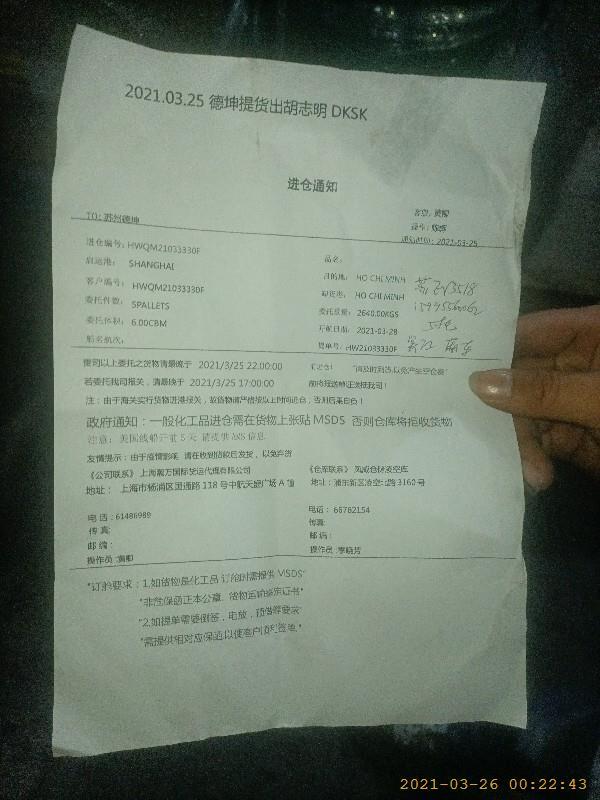 2021.03.25 德坤提货出胡志明 DKSK
进仓通知
TO: 苏州德坤
通知时间: 2021-03-25
进仓编号: HWQM21033330F
品名:
启运港: SHANGHAI
目的地: HO CHI MINH
客户编号: HWQM21033330F
卸货港: HO CHI MINH
委托件数: 5PALLETS
委托重量: 2640.00KGS
委托体积: 6.00CBM
开航日期: 2021-03-28
船名航次:
提单号: HW21033330F
需司以上委托之货物请最晚于 2021/3/25 22:00:00
"请及时到货,以免产生空仓费"
若委托我司报关,请最晚于 2021/3/25 17:00:00
前将报送单证送抵我司!
注:由于海关实行货物进港报关,故货物请严格按以上时间进仓,否则后果自负!
政府通知:一般化工品进仓需在货物上张贴 MSDS 否则仓库将拒收货物
注意: 美国线船开前 5 天 请提供 AMS 信息
友情提示:由于疫情影响,请在收到指款后发货,以免弃货
《公司联系》上海瀚万国际货运代理有限公司
《仓库联系》凤威仓储凌空库
地址: 上海市杨浦区国通路 118 号中航天盛广场 A 幢
地址:浦东新区凌空北路 3160 号
电 话:61486989
电话: 68762154
传 真:
传真:
邮 编:
邮编:
操作员:黄卿
操作员:李晓芳
"订舱要求:1.如货物是化工品 订舱时需提供 MSDS"
"非危保函正本公章、货物运输鉴定证书"
"2.如提单需要倒签,电放,预借等要求"
"需提供相对应保函,以便客户顺利签单."